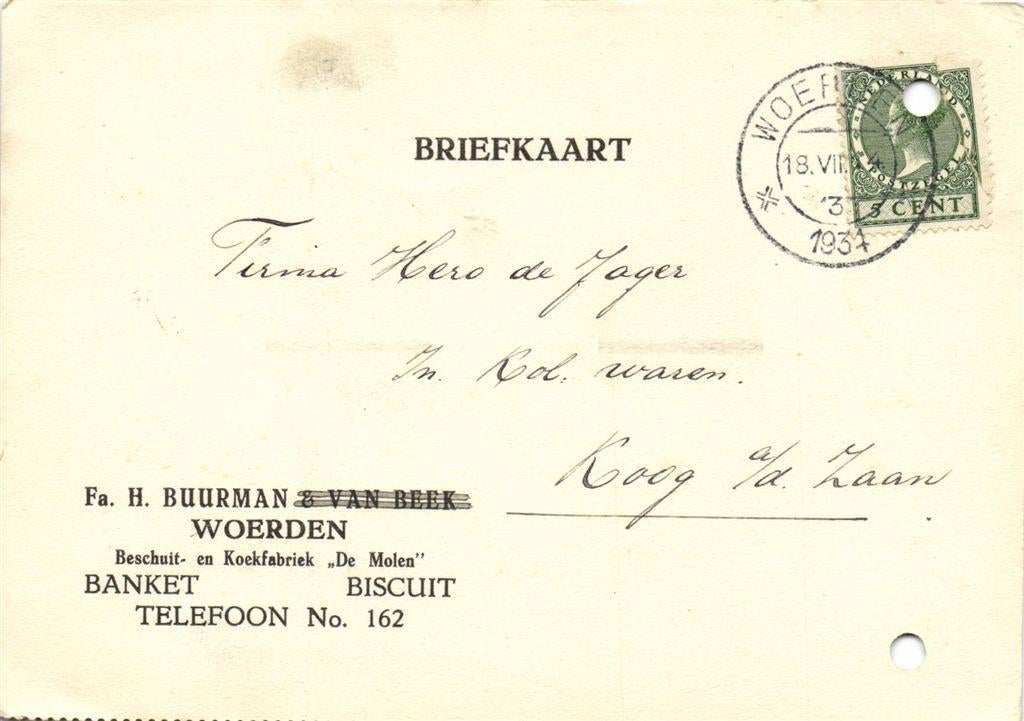 BRIEFKAART
WOERDEN
18.VII.
1934
NEDERLAND
POSTZEGEL
5 CENT
Firma Hero de Jager
In Kol. waren.
Koog a/d. Zaan
Fa. H. BUURMAN & VAN BEEK
WOERDEN
Beschuit- en Koekfabriek „De Molen”
BANKET BISCUIT
TELEFOON No. 162